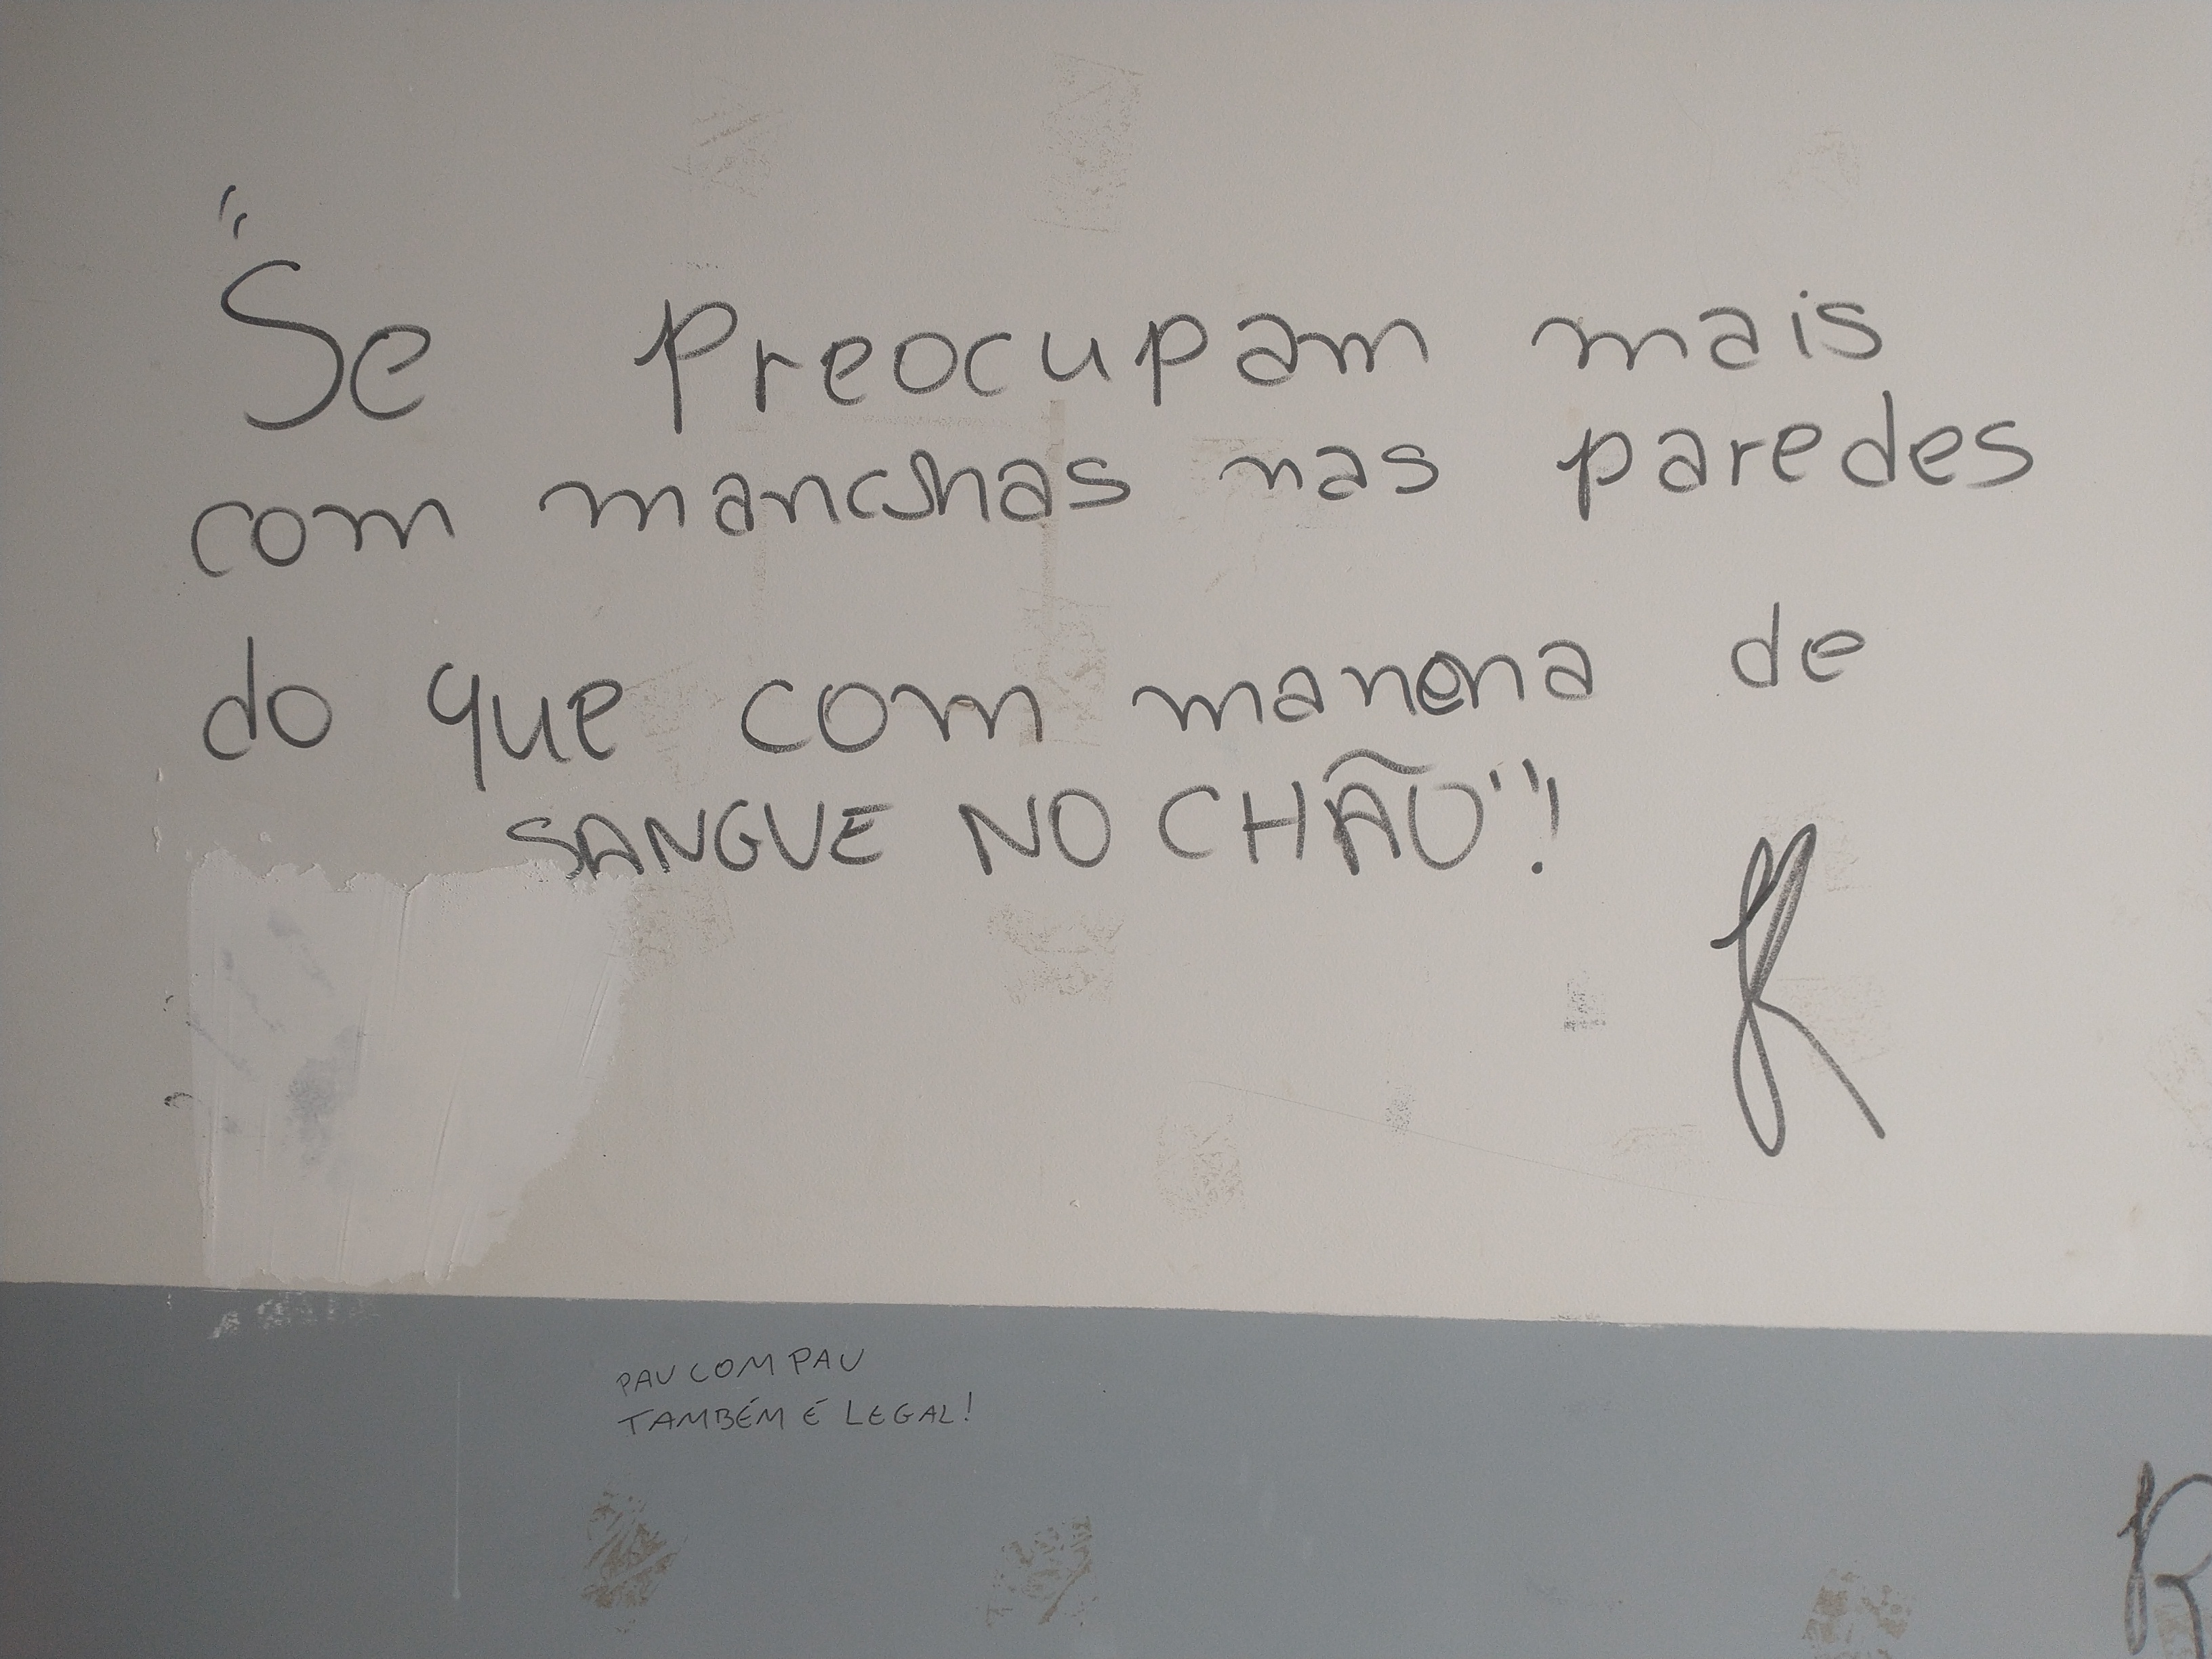 "Se Preocupam mais
com manchas nas paredes
do que com manena de
SANGUE NO CHÃO"!
K
PAU COM PAU
TAMBÉM É LEGAL!
R